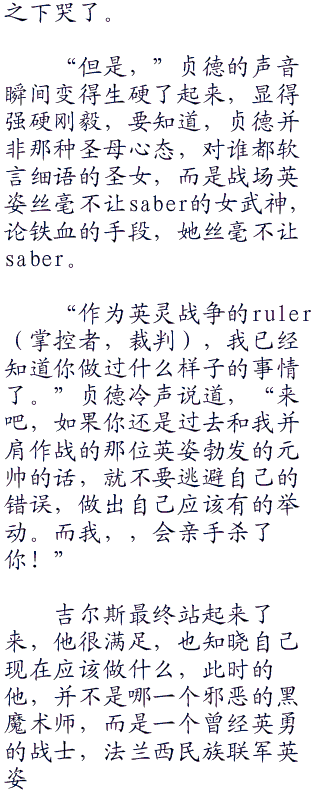 之下哭了。
“但是，”贞德的声音
瞬间变得生硬了起来，显得
强硬刚毅，要知道，贞德并
非那种圣母心态，对谁都软
言细语的圣女，而是战场英
姿丝毫不让saber的女武神，
论铁血的手段，她丝毫不让
saber。
“作为英灵战争的ruler
（掌控者，裁判），我已经
知道你做过什么样子的事情
了。”贞德冷声说道，“来
吧，如果你还是过去和我并
肩作战的那位英姿勃发的元
帅的话，就不要逃避自己的
错误，做出自己应该有的举
动。而我，，会亲手杀了
你！”
吉尔斯最终站起来了
来，他很满足，也知晓自己
现在应该做什么，此时的
他，并不是哪一个邪恶的黑
魔术师，而是一个曾经英勇
的战士，法兰西民族联军英
姿